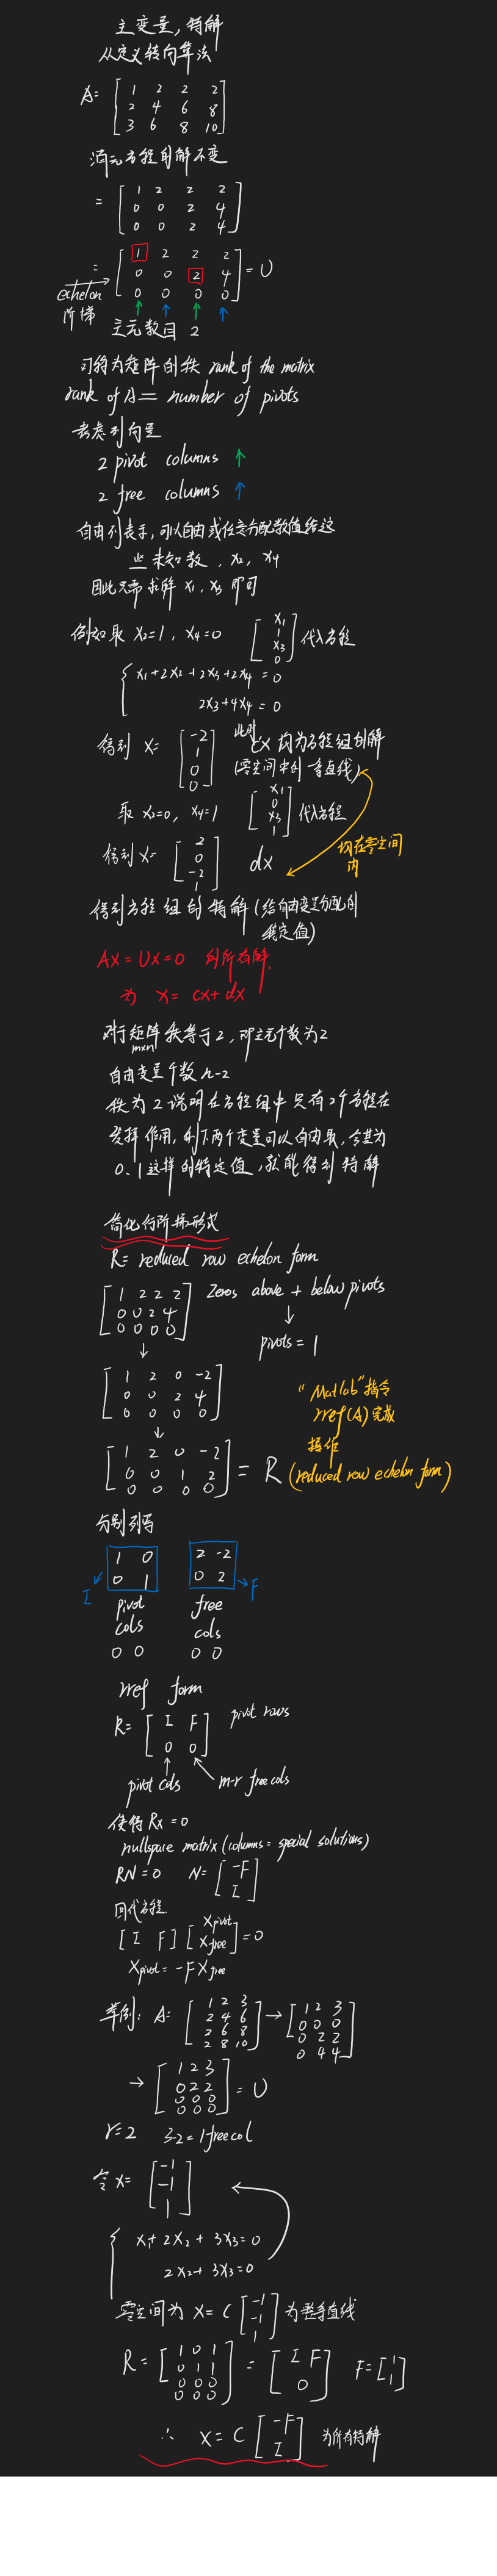 主变量，特解
从定义转向算法
A= [ 1 2 2 2
2 4 6 8
3 6 8 10 ]
消元方程的解不变
= [ 1 2 2 2
0 0 2 4
0 0 2 4 ]
= [ 1 2 2 2
0 0 2 4
0 0 0 0 ] = U
echelon
阶梯
主元数目 2
可称为矩阵的秩 rank of the matrix
rank of A = number of pivots
考虑列向量
2 pivot columns ↑
2 free columns ↑
自由列表示，可以自由或任意分配数值给这
些未知数，x2, x4
因此只需求解 x1, x3 即可
例如取 x2=1, x4=0 [ x1 1 x3 0 ] 代入方程
{ x1+2x2+2x3+2x4=0
2x3+4x4=0
得到 x= [ -2 1 0 0 ] 此时 cx 均为方程组的解
(零空间中的一条直线)
取 x2=0, x4=1 [ x1 0 x3 1 ] 代入方程
得到 x= [ 2 0 -2 1 ] dx
均在零空间
内
得到方程组的特解(给自由变量分配的
特定值)
AX=UX=0 的所有解
为 x= cx+dx
对于矩阵秩等于2，即主元个数为2
m×n
自由变量个数 n-2
秩为2说明在方程组中只有2个方程在
发挥作用，剩下两个变量可以自由取，令其为
0、1这样的特定值，就能得到特解
简化行阶梯形式
R= reduced row echelon form
[ 1 2 2 2
0 0 2 4
0 0 0 0 ]
Zeros above + below pivots
↓
pivots = 1
↓
[ 1 2 0 -2
0 0 2 4
0 0 0 0 ]
↓
[ 1 2 0 -2
0 0 1 2
0 0 0 0 ] = R
"Matlab"指令
rref(A)完成
操作
(reduced row echelon form)
分别列写
1 0
0 1
I
pivot
cols
0 0
2 -2
0 2
F
free
cols
0 0
rref form
R= [ I F
0 0 ] pivot rows
pivot cols
m-r free cols
使得 Rx=0
nullspace matrix (columns = special solutions)
RN=0 N= [ -F
I ]
回代方程
[ I F ] [ Xpivot
Xfree ] =0
Xpivot = -F Xfree
举例: A= [ 1 2 3
2 4 6
2 6 8
2 8 10 ] → [ 1 2 3
0 0 0
0 2 2
0 4 4 ]
→ [ 1 2 3
0 2 2
0 0 0
0 0 0 ] = U
r=2 3-2=1 free col
令 x= [ -1
-1
1 ]
{ x1+2x2+3x3=0
2x2+3x3=0
零空间为 x= C [ -1
-1
1 ] 为一条直线
R= [ 1 0 1
0 1 1
0 0 0
0 0 0 ] = [ I F
0 ] F= [ 1
1 ]
∴ x= C [ -F
I ] 为所有特解